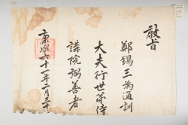 敎旨
鄭錫三爲通訓
大夫行世子侍
講院弼善者
康熙六十一年二月三十日